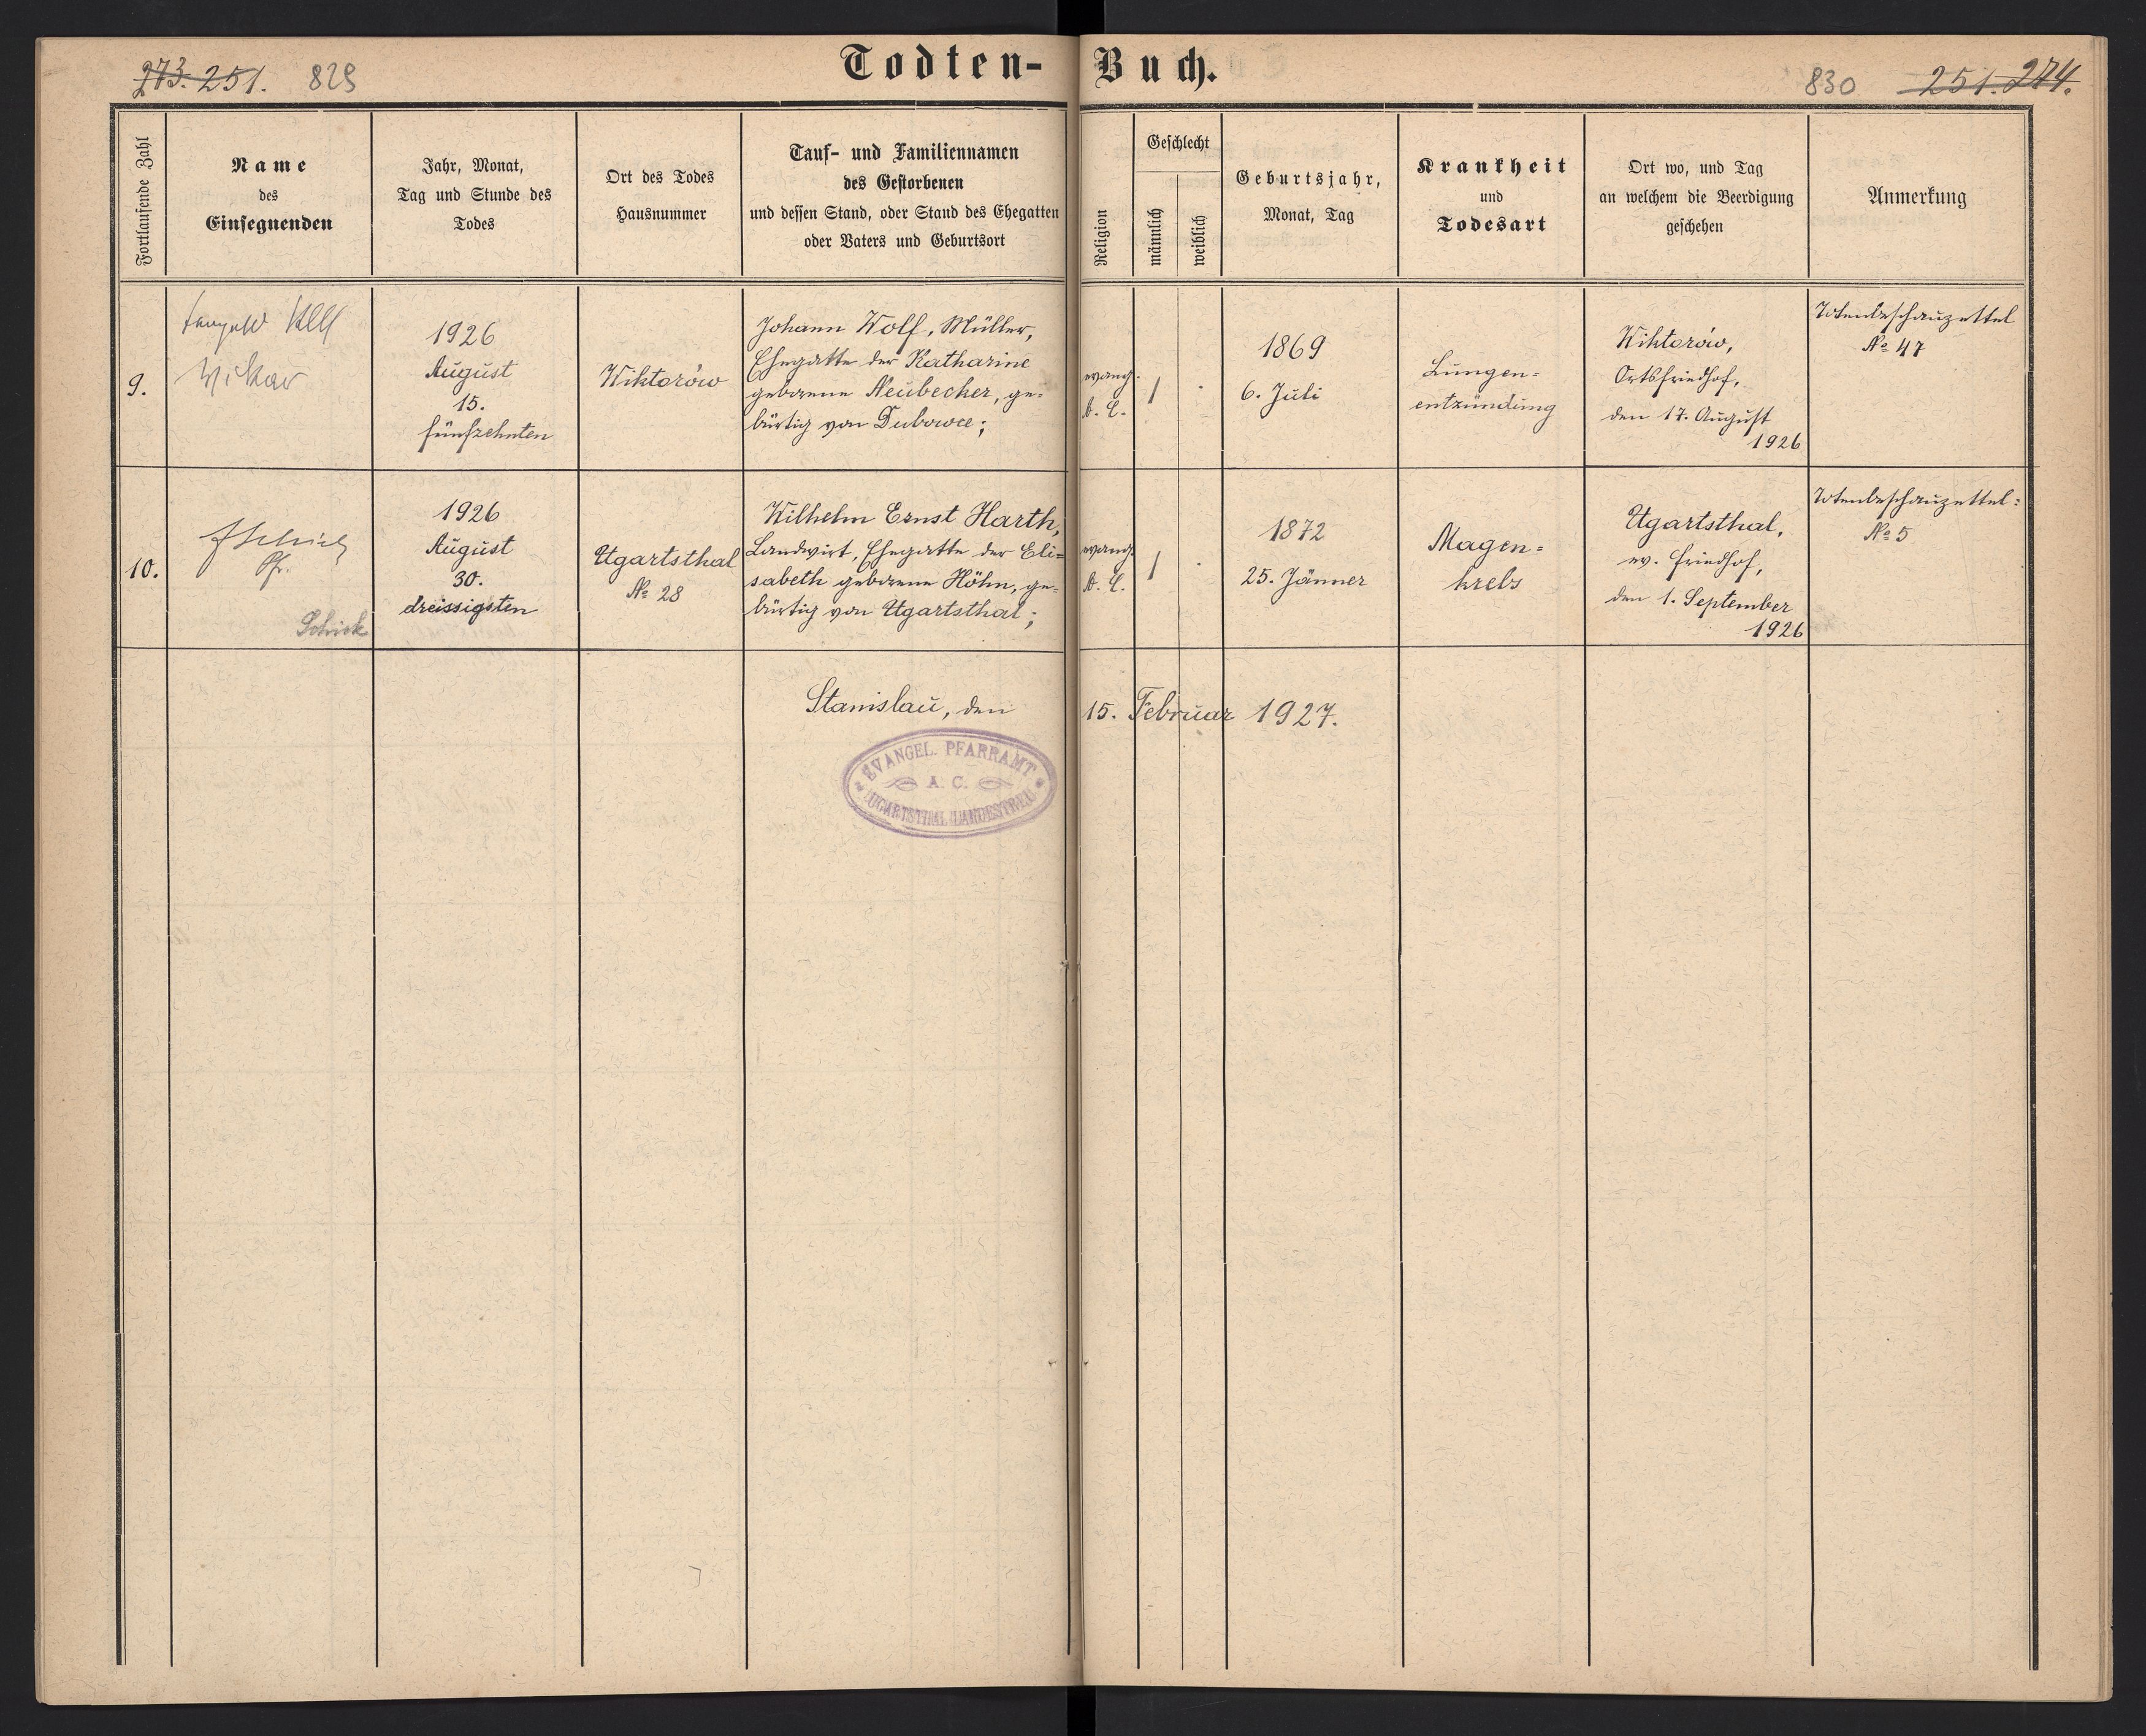 273. 251. 829
Todten-Buch.
830 251. 274.
Fortlaufende Zahl
Name
des
Einsegnenden
Jahr, Monat,
Tag und Stunde des
Todes
Ort des Todes
Hausnummer
Tauf- und Familiennamen
des Gestorbenen
und dessen Stand, oder Stand des Ehegatten
oder Vaters und Geburtsort
Religion
Geschlecht
männlich
weiblich
Geburtsjahr,
Monat, Tag
Krankheit
und
Todesart
Ort wo, und Tag
an welchem die Beerdigung
geschehen
Anmerkung
9.
Vikar
1926
August
15.
fünfzehnten
Wiktorów
Johann Wolf, Müller,
Ehegatte der Katharine
geborene Neubecher, ge=
bürtig von Dubowce;
evang.
A. C.
1869
6. Juli
Lungen=
entzündung
Wiktorów,
Ortsfriedhof,
den 17. August
1926
Totenbeschauzettel
№ 47
10.
Pfr.
Schick
1926
August
30.
dreissigsten
Ugartsthal
№ 28
Wilhelm Ernst Harth,
Landwirt, Ehegatte der Eli=
sabeth geborene Höhn, ge=
bürtig von Ugartsthal;
evang.
A. C.
1872
25. Jänner
Magen=
krebs
Ugartsthal,
ev. Friedhof,
den 1. September
1926
Totenbeschauzettel:
№ 5
Stanislau, den 15. Februar 1927.
EVANGEL. PFARRAMT
A. C.
UGARTSTHAL LANDESTREU